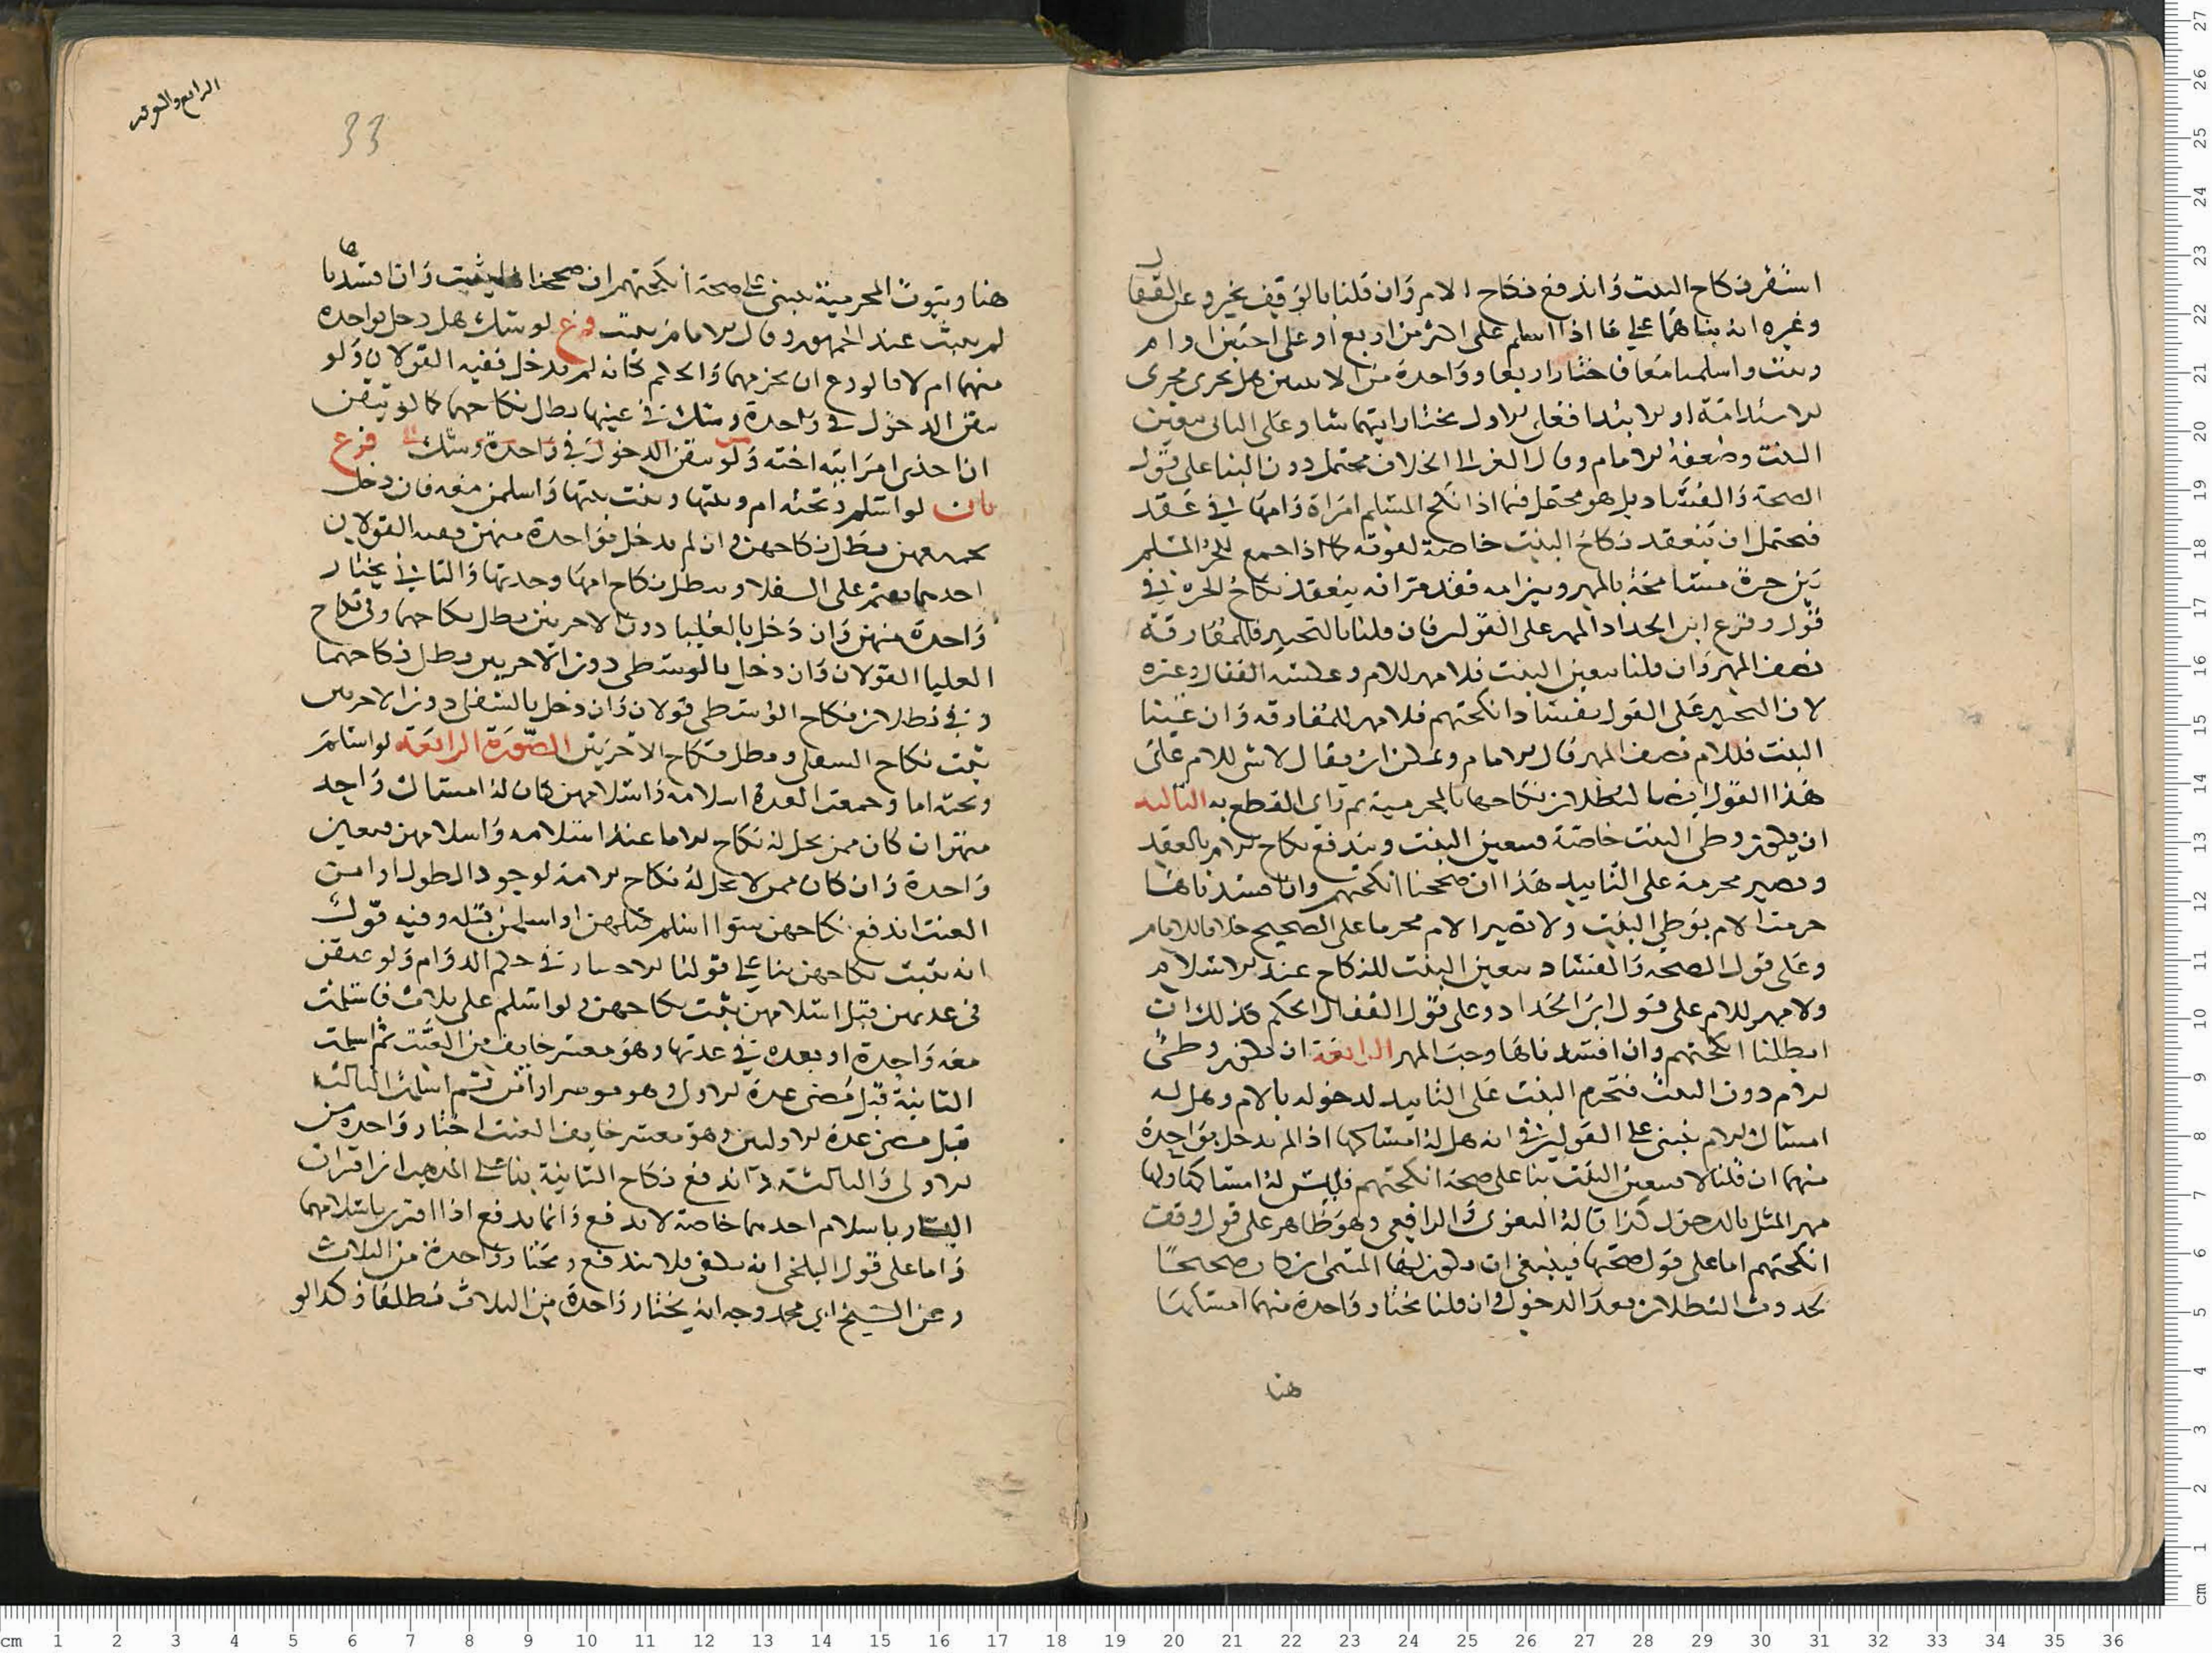 استقر نكاح البنت واندفع نكاح الام وان قلنا بالتوقيف يخير وعن القفال
وغيره انه بناهما على ما اذا اسلم على اكثر من اربع او على اختين او ام
وبنت واسلمتا معا فاختار اربعا وواحدة من الاختين هل يجرى مجرى
الاستدامة او الابتدا فعلى الاول يختار ايتهما شا وعلى الثانى تتعين
البنت وضعفه الامام وقال الغزالى الخلاف محتمل دون البنا على قول
الصحة والفساد بل هو محتمل فيما اذا نكح المسلم امراة وامها في عقد
فيحتمل ان ينعقد نكاح البنت خاصة لقوته كما اذا جمع الحر المسلم
بين حرة مسامحة بالمهر وبين امه فقد مر انه ينعقد نكاح الحره في
قول وفرع ابن الحداد المهر على القولين فان قلنا بالتخيير فللمفارقة
نصف المهر وان قلنا تتعين البنت فلا مهر للام وعكسه القفال وغيره
لان التخيير على القول بفساد انكحتهم فلا مهر للمفارقه وان عينا
البنت فللام نصف المهر قال الامام ويمكن ان يقال لا شى للام على
هذا القول ايضا لبطلان نكاحها بالمحرمية ثم راى القطع به الثالثه
ان يكون وطى البنت خاصة فتتعين البنت ويندفع نكاح الام بالعقد
وتصير محرمة على التابيد هذا ان صححنا انكحتهم وان افسدناها
حرمت الام بوطي البنت ولا تصير الام محرما على الصحيح خلافا للامام
وعلى قول الصحه والفساد تتعين البنت للنكاح عند الاسلام
ولا مهر للام على قول ابن الحداد وعلى قول القفال الحكم كذلك ان
ابطلنا انكحتهم وان افسدناها وجب المهر الرابعة ان يكون وطئ
الام دون البنت فتحرم البنت على التابيد لدخوله بالام وهل له
امساك الام يبنى على القولين في انه هل له امساكها اذا لم يدخل بواحدة
منهما ان قلنا لا تتعين البنت بنا على صحة انكحتهم فليس له امساكها ولها
مهر المثل بالدخول كذا قاله البغوى والرافعى وهو ظاهر على قول وقف
انكحتهم اما على قول صحتها فينبغى ان يكون لها المسمى ان كان صحيحا
لحدوث البطلان بعد الدخول وان قلنا يختار واحدة منهما امسكها
هنا
الرابع والعشر
33
هنا وثبوت المحرمية يبنى على صحة انكحتهم ان صححنا ها ثبتت وان افسدناها
لم يثبت عند الجمهور وقال الامام يثبت فرع لو شك هل دخل بواحده
منهما ام لا فالورع ان يحرمهما والحكم كانه لم يدخل ففيه القولان ولو
تيقن الدخول في واحدة وشك في عينها بطل نكاحهما كما لو تيقن
ان احدى امراتيه اخته ولو تيقن الدخول في واحدة وشك فرع
ثان لو اسلم وتحته ام وبنتها وبنت بنتها واسلمن معه فان دخل
بجميعهن بطل نكاحهن وان لم يدخل بواحدة منهن ففيه القولان
احدهما يقتصر على السفلا ويبطل نكاح امها وجدتها والثاني يختار
واحدة منهن وان دخل بالعليا دون الاخريين بطل نكاحهما وفي نكاح
العليا القولان وان دخل بالوسطى دون الاخريين بطل نكاحهما
وفي بطلان نكاح الوسطى قولان وان دخل بالسفلى دون الاخريين
ثبت نكاح السفلى وبطل نكاح الاخريين الصورة الرابعه لو اسلم
وتحته اما وجمعت العدة اسلامه واسلامهن كان له امساك واحد
منهن ان كان ممن يحل له نكاح الاما عند اسلامه واسلامهن فتتعين
واحدة وان كان ممن لا يحل له نكاح الامة لوجود الطول او امن
العنت اندفع نكاحهن سوا اسلم قبلهن او اسلمن قبله وفيه قول
انه يثبت نكاحهن بنا على قولنا الاختيار في حكم الدوام ولو عتقن
في عدتهن قبل اسلامهن يثبت نكاحهن ولو اسلم على ثلاث فاسلمت
معه واحدة او بعده في عدتها وهو معسر خايف من العنت ثم اسلمت
الثانية قبل مضي عدة الاولى وهو موسر او امن ثم اسلمت الثالثة
قبل مضى عدة الاوليين وهو معسر خايف العنت اختار واحدة من
الاولى والثالثه واندفع نكاح الثانية بنا على المذهب ان اقتران
اليسار باسلام احدهما خاصة لا يدفع وانما يدفع اذا اقترن باسلامهما
واما على قول البلخى انه يكفى فلا يندفع ويختار واحدة من الثلاث
وعن الشيخ ابي محمد وجه انه يختار واحدة من الثلاث مطلقا وكذا لو